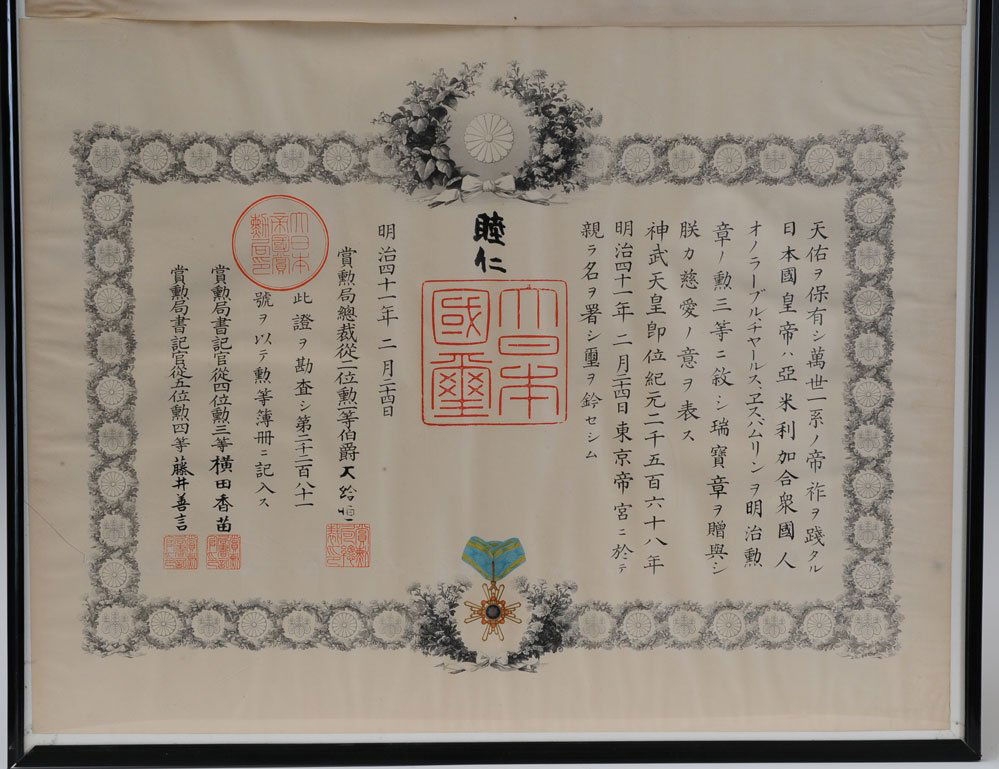 天佑ヲ保有シ萬世一系ノ帝祚ヲ踐タル
日本國皇帝ハ亞米利加合衆國人
オノラーブルチャールス、ヱスハムリンヲ明治勲
章ノ勲三等ニ敘シ瑞寶章ヲ贈與シ
朕カ慈愛ノ意ヲ表ス
神武天皇即位紀元二千五百六十八年
明治四十一年二月二十四日東京帝宮ニ於テ
親ラ名ヲ署シ璽ヲ鈐セシム
睦仁
大日本
國璽
明治四十一年二月二十四日
賞勲局總裁從二位勲一等伯爵大給恒
此證ヲ勘査シ第二千二百八十一
號ヲ以テ勲等簿册ニ記入ス
大日本
帝國賞
勲局印
賞勲局書記官從四位勲三等横田香苗
賞勲局書記官從五位勲四等藤井善言